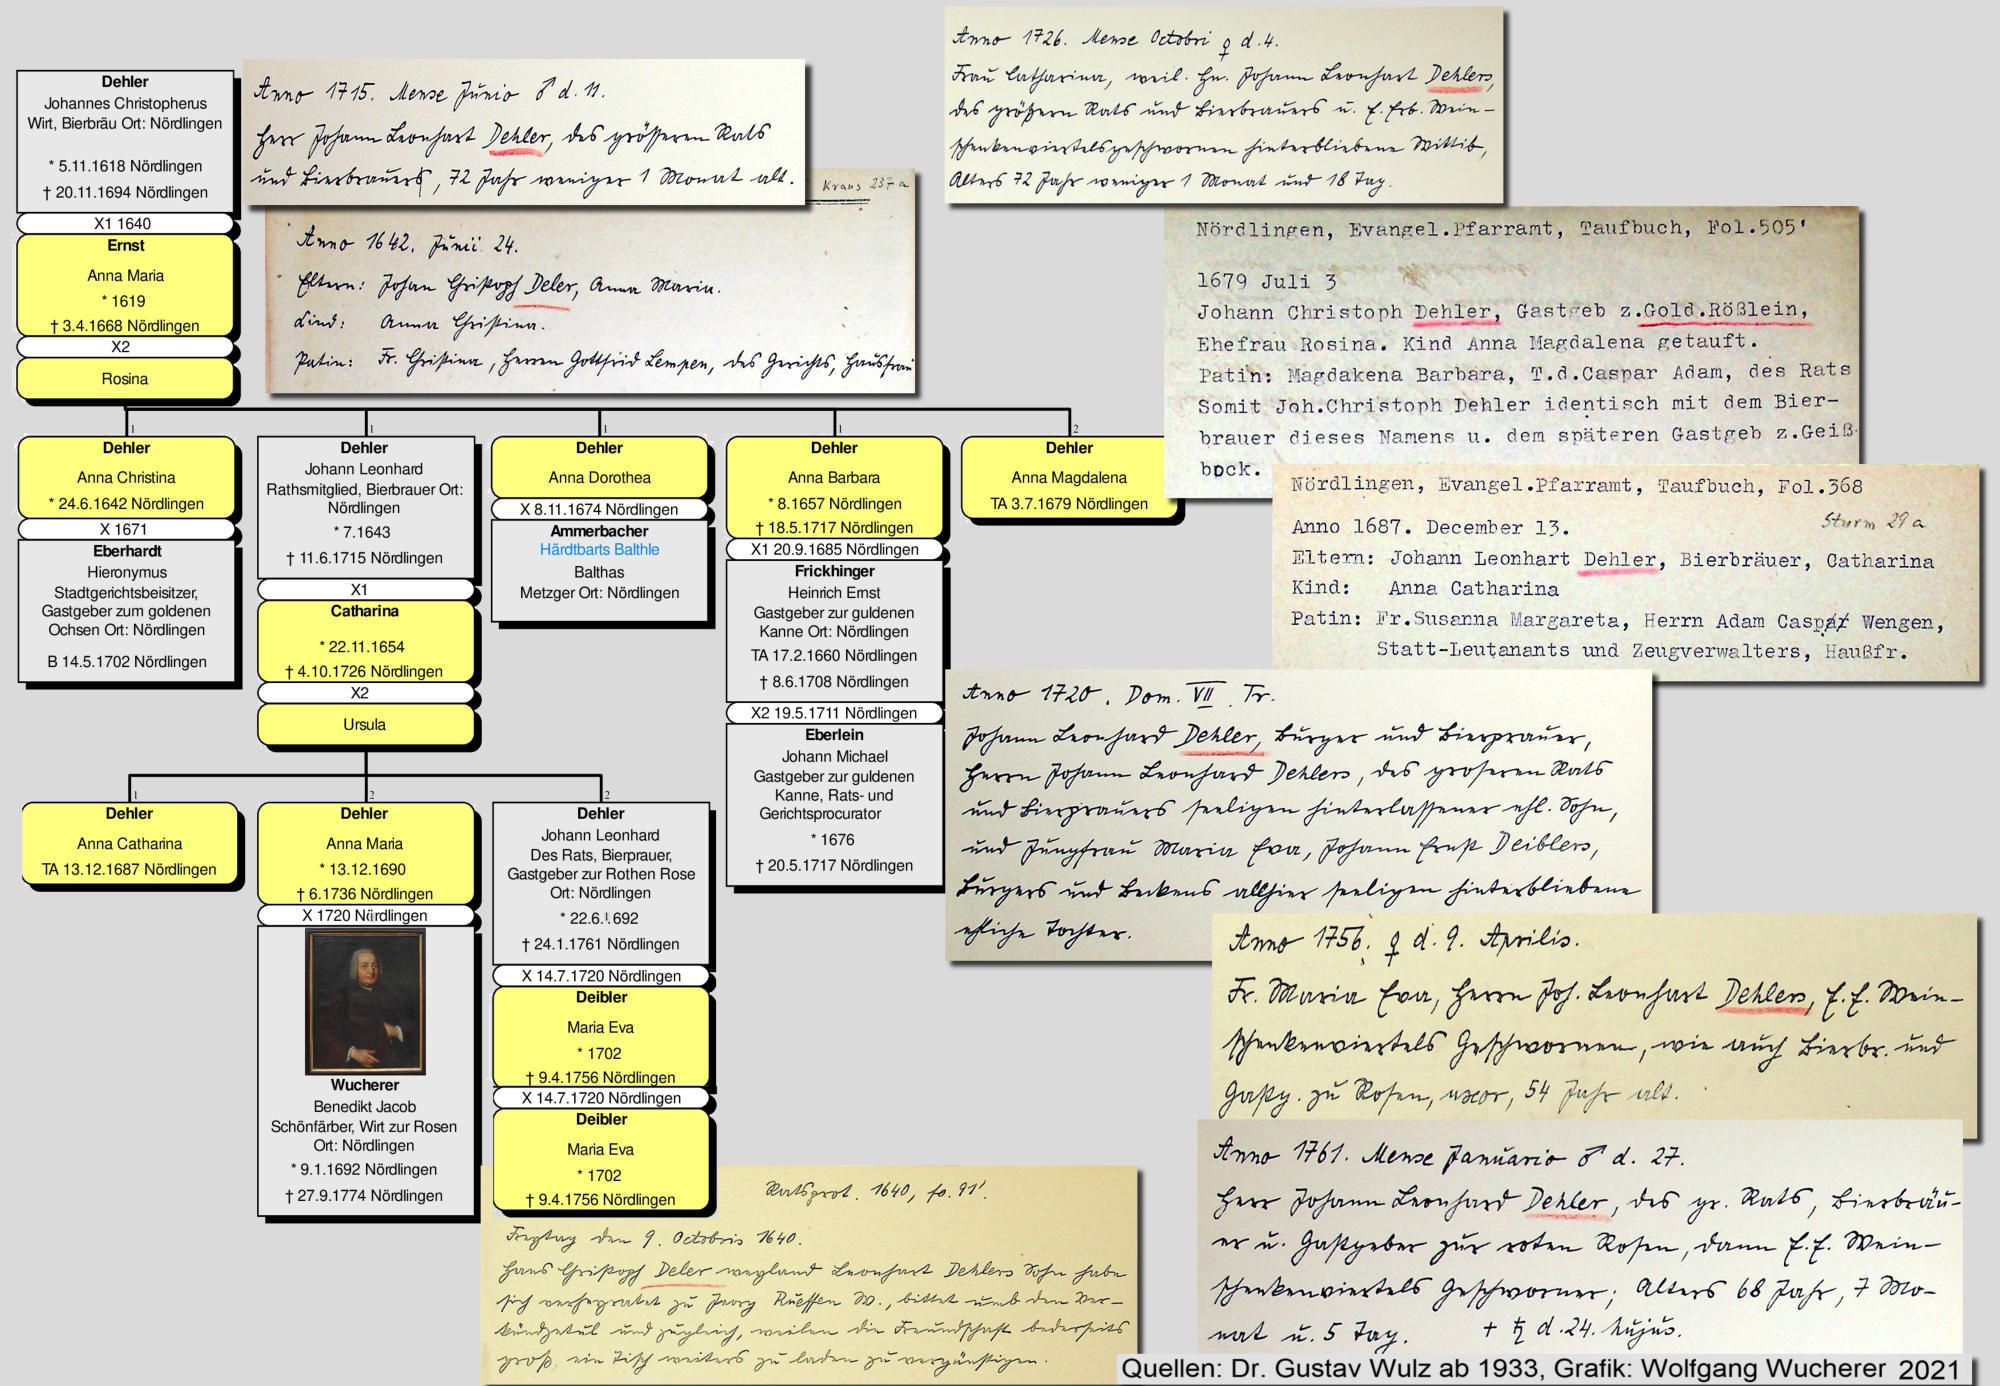 Dehler
Johannes Christopherus
Wirt, Bierbräu Ort: Nördlingen
* 5.11.1618 Nördlingen
† 20.11.1694 Nördlingen
X1 1640
Ernst
Anna Maria
* 1619
† 3.4.1668 Nördlingen
X2
Rosina
Anno 1715. Mense Junio ♂ d. 11.
Herr Johann Leonhart Dehler, des grösseren Rats
und Bierbrauers, 72 Jahr weniger 1 Monat alt.
Kraus 237 a
Anno 1642. Junii 24.
Eltern: Johan Christoph Deler, Anna Maria.
Kind: Anna Christina.
Patin: Fr. Christina, Herren Gottfrid Lempen, des Gerichts, Hausfrau
Anno 1726. Mense Octobri ♀ d. 4.
Frau Catharina, weil. Hn. Johann Leonhart Dehlers,
des größern Rats und Bierbrauers u. E. Erb. Wein-
schenkenviertelsgeschwornen hinterbliebene Wittib,
Alters 72 Jahr weniger 1 Monat und 18 Tag.
Nördlingen, Evangel.Pfarramt, Taufbuch, Fol.505'
1679 Juli 3
Johann Christoph Dehler, Gastgeb z.Gold.Rößlein,
Ehefrau Rosina. Kind Anna Magdalena getauft.
Patin: Magdakena Barbara, T.d.Caspar Adam, des Rats
Somit Joh.Christoph Dehler identisch mit dem Bier-
brauer dieses Namens u. dem späteren Gastgeb z.Geiß-
bock.
Nördlingen, Evangel.Pfarramt, Taufbuch, Fol.368
Sturm 29 a
Anno 1687. December 13.
Eltern: Johann Leonhart Dehler, Bierbräuer, Catharina
Kind: Anna Catharina
Patin: Fr.Susanna Margareta, Herrn Adam Caspar Wengen,
Statt-Leutanants und Zeugverwalters, Haußfr.
1
1
1
1
2
Dehler
Anna Christina
* 24.6.1642 Nördlingen
X 1671
Eberhardt
Hieronymus
Stadtgerichtsbeisitzer,
Gastgeber zum goldenen
Ochsen Ort: Nördlingen
B 14.5.1702 Nördlingen
Dehler
Johann Leonhard
Rathsmitglied, Bierbrauer Ort:
Nördlingen
* 7.1643
† 11.6.1715 Nördlingen
X1
Catharina
* 22.11.1654
† 4.10.1726 Nördlingen
X2
Ursula
Dehler
Anna Dorothea
X 8.11.1674 Nördlingen
Ammerbacher
Härdtbarts Balthle
Balthas
Metzger Ort: Nördlingen
Dehler
Anna Barbara
* 8.1657 Nördlingen
† 18.5.1717 Nördlingen
X1 20.9.1685 Nördlingen
Frickhinger
Heinrich Ernst
Gastgeber zur guldenen
Kanne Ort: Nördlingen
TA 17.2.1660 Nördlingen
† 8.6.1708 Nördlingen
X2 19.5.1711 Nördlingen
Eberlein
Johann Michael
Gastgeber zur guldenen
Kanne, Rats- und
Gerichtsprocurator
* 1676
† 20.5.1717 Nördlingen
Dehler
Anna Magdalena
TA 3.7.1679 Nördlingen
1
2
2
Dehler
Anna Catharina
TA 13.12.1687 Nördlingen
Dehler
Anna Maria
* 13.12.1690
† 6.1736 Nördlingen
X 1720 Nördlingen
Wucherer
Benedikt Jacob
Schönfärber, Wirt zur Rosen
Ort: Nördlingen
* 9.1.1692 Nördlingen
† 27.9.1774 Nördlingen
Dehler
Johann Leonhard
Des Rats, Bierprauer,
Gastgeber zur Rothen Rose
Ort: Nördlingen
* 22.6.1692
† 24.1.1761 Nördlingen
X 14.7.1720 Nördlingen
Deibler
Maria Eva
* 1702
† 9.4.1756 Nördlingen
X 14.7.1720 Nördlingen
Deibler
Maria Eva
* 1702
† 9.4.1756 Nördlingen
Anno 1720. Dom. VII Tr.
Johann Leonhard Dehler, Burger und Bierprauer,
Herrn Johann Leonhard Dehlers, des groseren Rats
und Bierprauers seeligen hinterlassener ehl. Sohn,
und Jungfrau Maria Eva, Johann Ernst Deiblers,
Burgers und Beckens allhier seeligen hinterbliebene
ehliche Tochter.
Anno 1756. ♀ d. 9. Aprilis.
Fr. Maria Eva, Herrn Joh. Leonhart Dehlers, E. E. Wein-
schenkenviertels Geschwornen, wie auch Bierbr. und
Gastg. zu Rosen, uxor, 54 Jahr alt.
Anno 1761. Mense Januario ♂ d. 27.
Herr Johann Leonhard Dehler, des gr. Rats, Bierbräu-
er u. Gastgeber zur roten Rosen, dann E. E. Wein-
schenkenviertels Geschworner; Alters 68 Jahr, 7 Mo-
nat u. 5 Tag. † ♄ d. 24. hujus.
Ratsprot. 1640, fo. 91'.
Freytag den 9. Octobris 1640.
Hans Christoph Deler weyland Leonhart Dehlers Sohn habe
sich verheyratet zu Georg Rueffen W., bittet umb den Ver-
kündzetul und zugleich, weilen die Freundschaft bederseits
groß, ein Tisch weiters zu laden zu vergünstigen.
Quellen: Dr. Gustav Wulz ab 1933, Grafik: Wolfgang Wucherer 2021